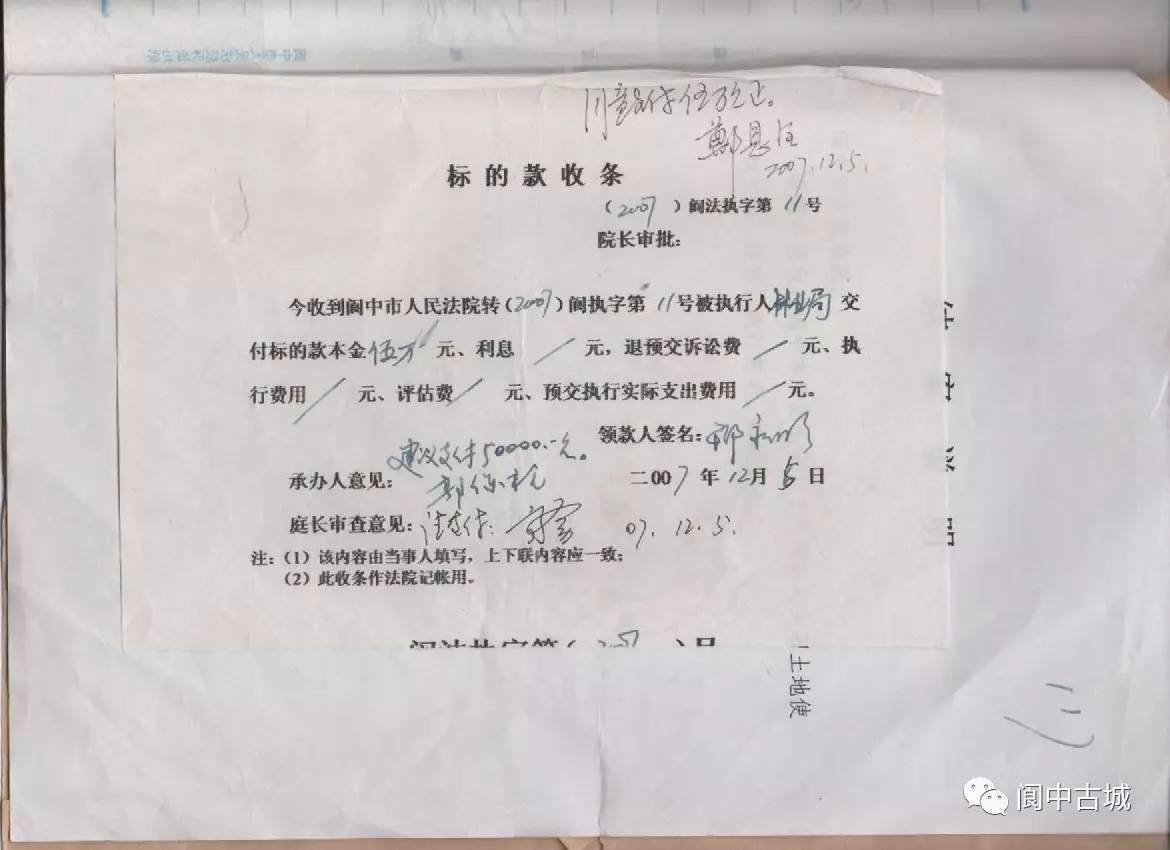 同意付伍万元正。
2007.12.5.
标的款收条
（2007）阆法执字第11号
院长审批：
今收到阆中市人民法院转（2007）阆执字第11号被执行人林业局交
付标的款本金伍万元、利息／元，退预交诉讼费／元、执
行费用／元、评估费／元、预交执行实际支出费用／元。
领款人签名：
建议支付50000.-元。
承办人意见： 二007年12月5日
庭长审查意见： 07.12.5.
注：（1）该内容由当事人填写，上下联内容应一致；
（2）此收条作法院记帐用。
土地使
阆中古城